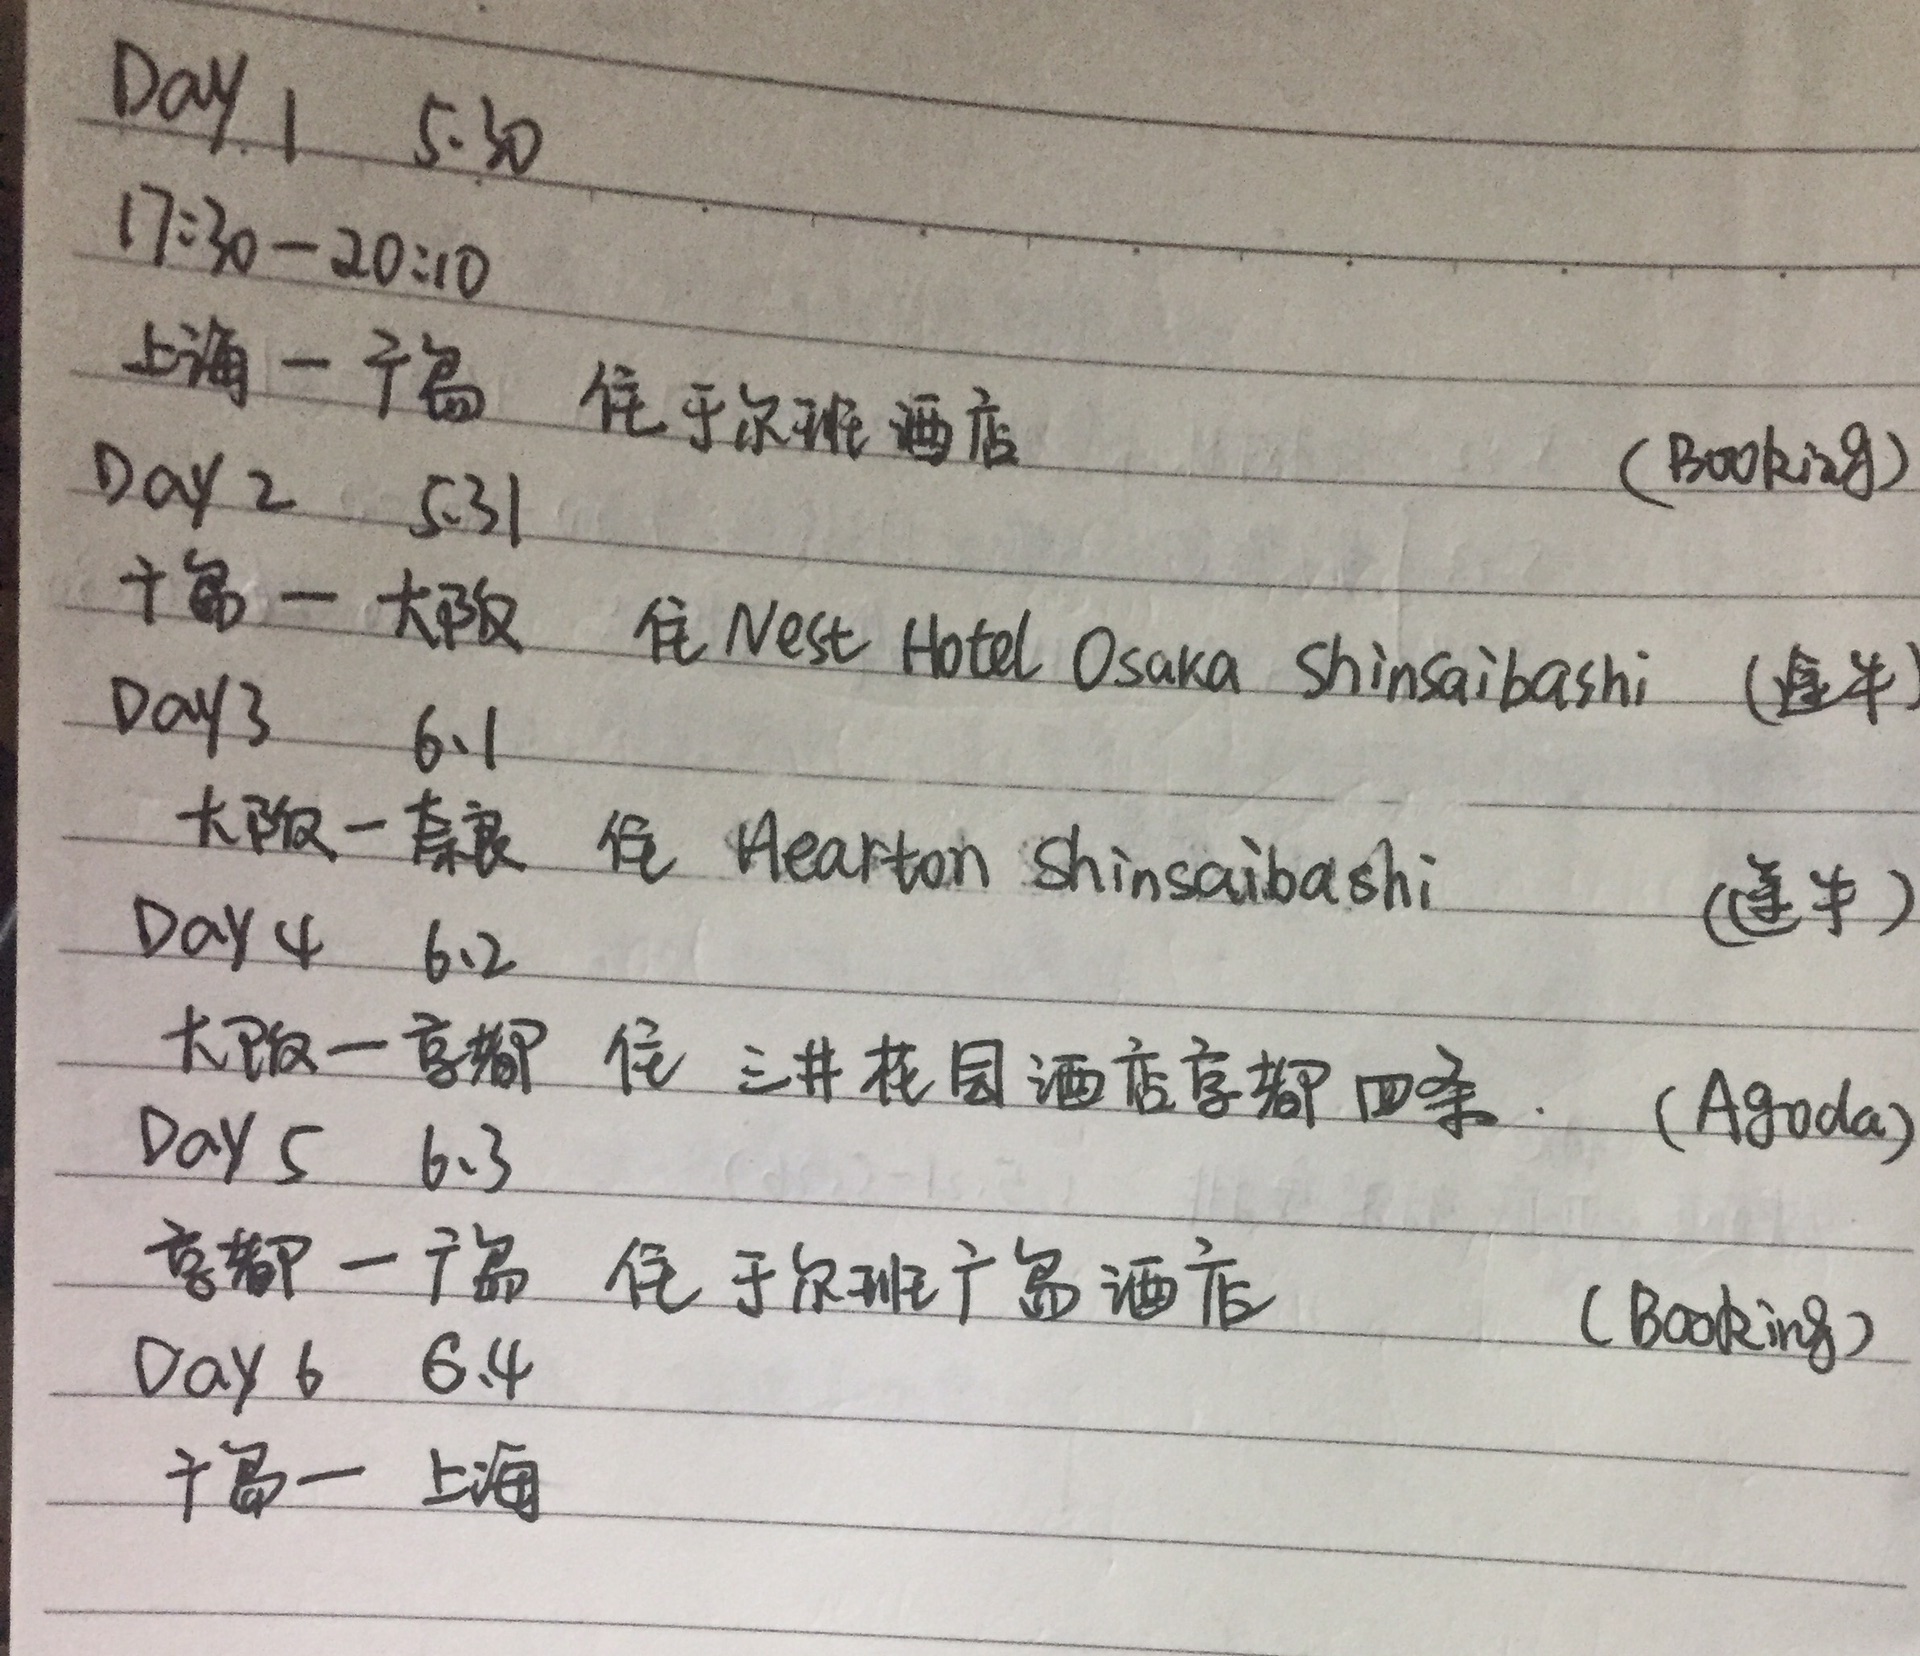 Day.1 5.30
17:30-20:10
上海 - 广岛 住于尔班酒店 (Booking)
Day 2 5.31
广岛 - 大阪 住 Nest Hotel Osaka Shinsaibashi (途牛)
Day 3 6.1
大阪 - 奈良 住 Hearton Shinsaibashi (途牛)
Day 4 6.2
大阪 - 京都 住 三井花园酒店京都四条. (Agoda)
Day 5 6.3
京都 - 广岛 住于尔班广岛酒店 (Booking)
Day 6 6.4
广岛 - 上海